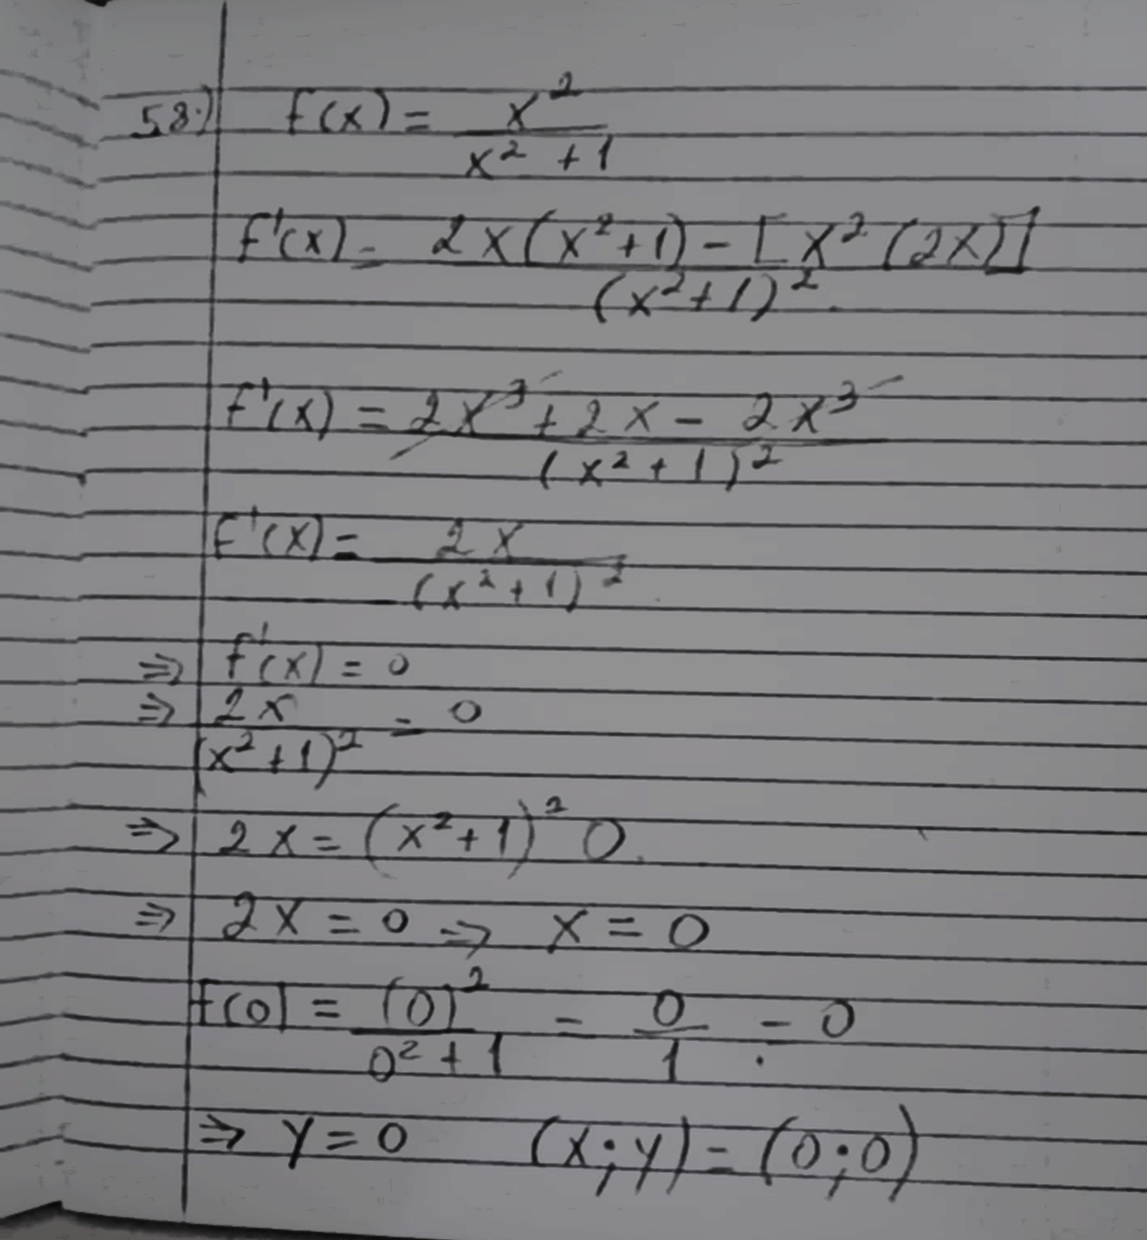 58.) f(x) = x² / x² + 1
f'(x) = 2x(x²+1) - [x² (2x)] / (x²+1)².
f'(x) = 2x³ + 2x - 2x³ / (x² + 1)²
f'(x) = 2x / (x² + 1)²
⇒ f'(x) = 0
⇒ 2x / (x² + 1)² = 0
⇒ 2x = (x² + 1)² 0.
⇒ 2x = 0 ⇒ x = 0
f(0) = (0)² / 0² + 1 = 0 / 1 = 0
⇒ y = 0 (x;y) = (0;0)